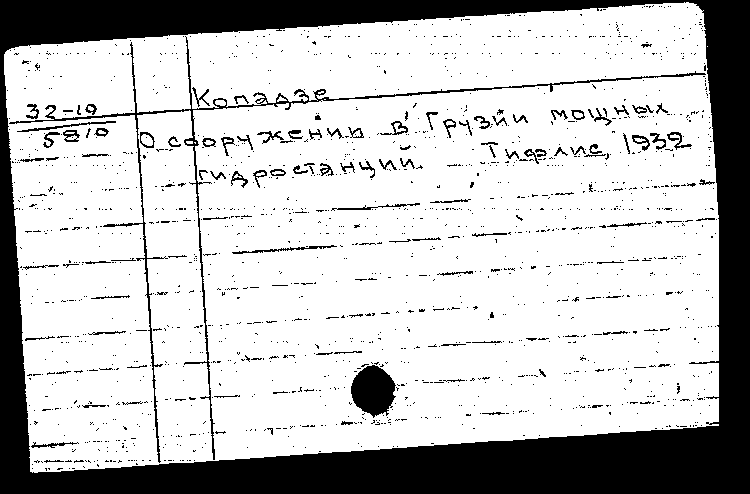 Копадзе
32-19
5810
О сооружении в Грузии мощных
гидростанций. Тифлис, 1932